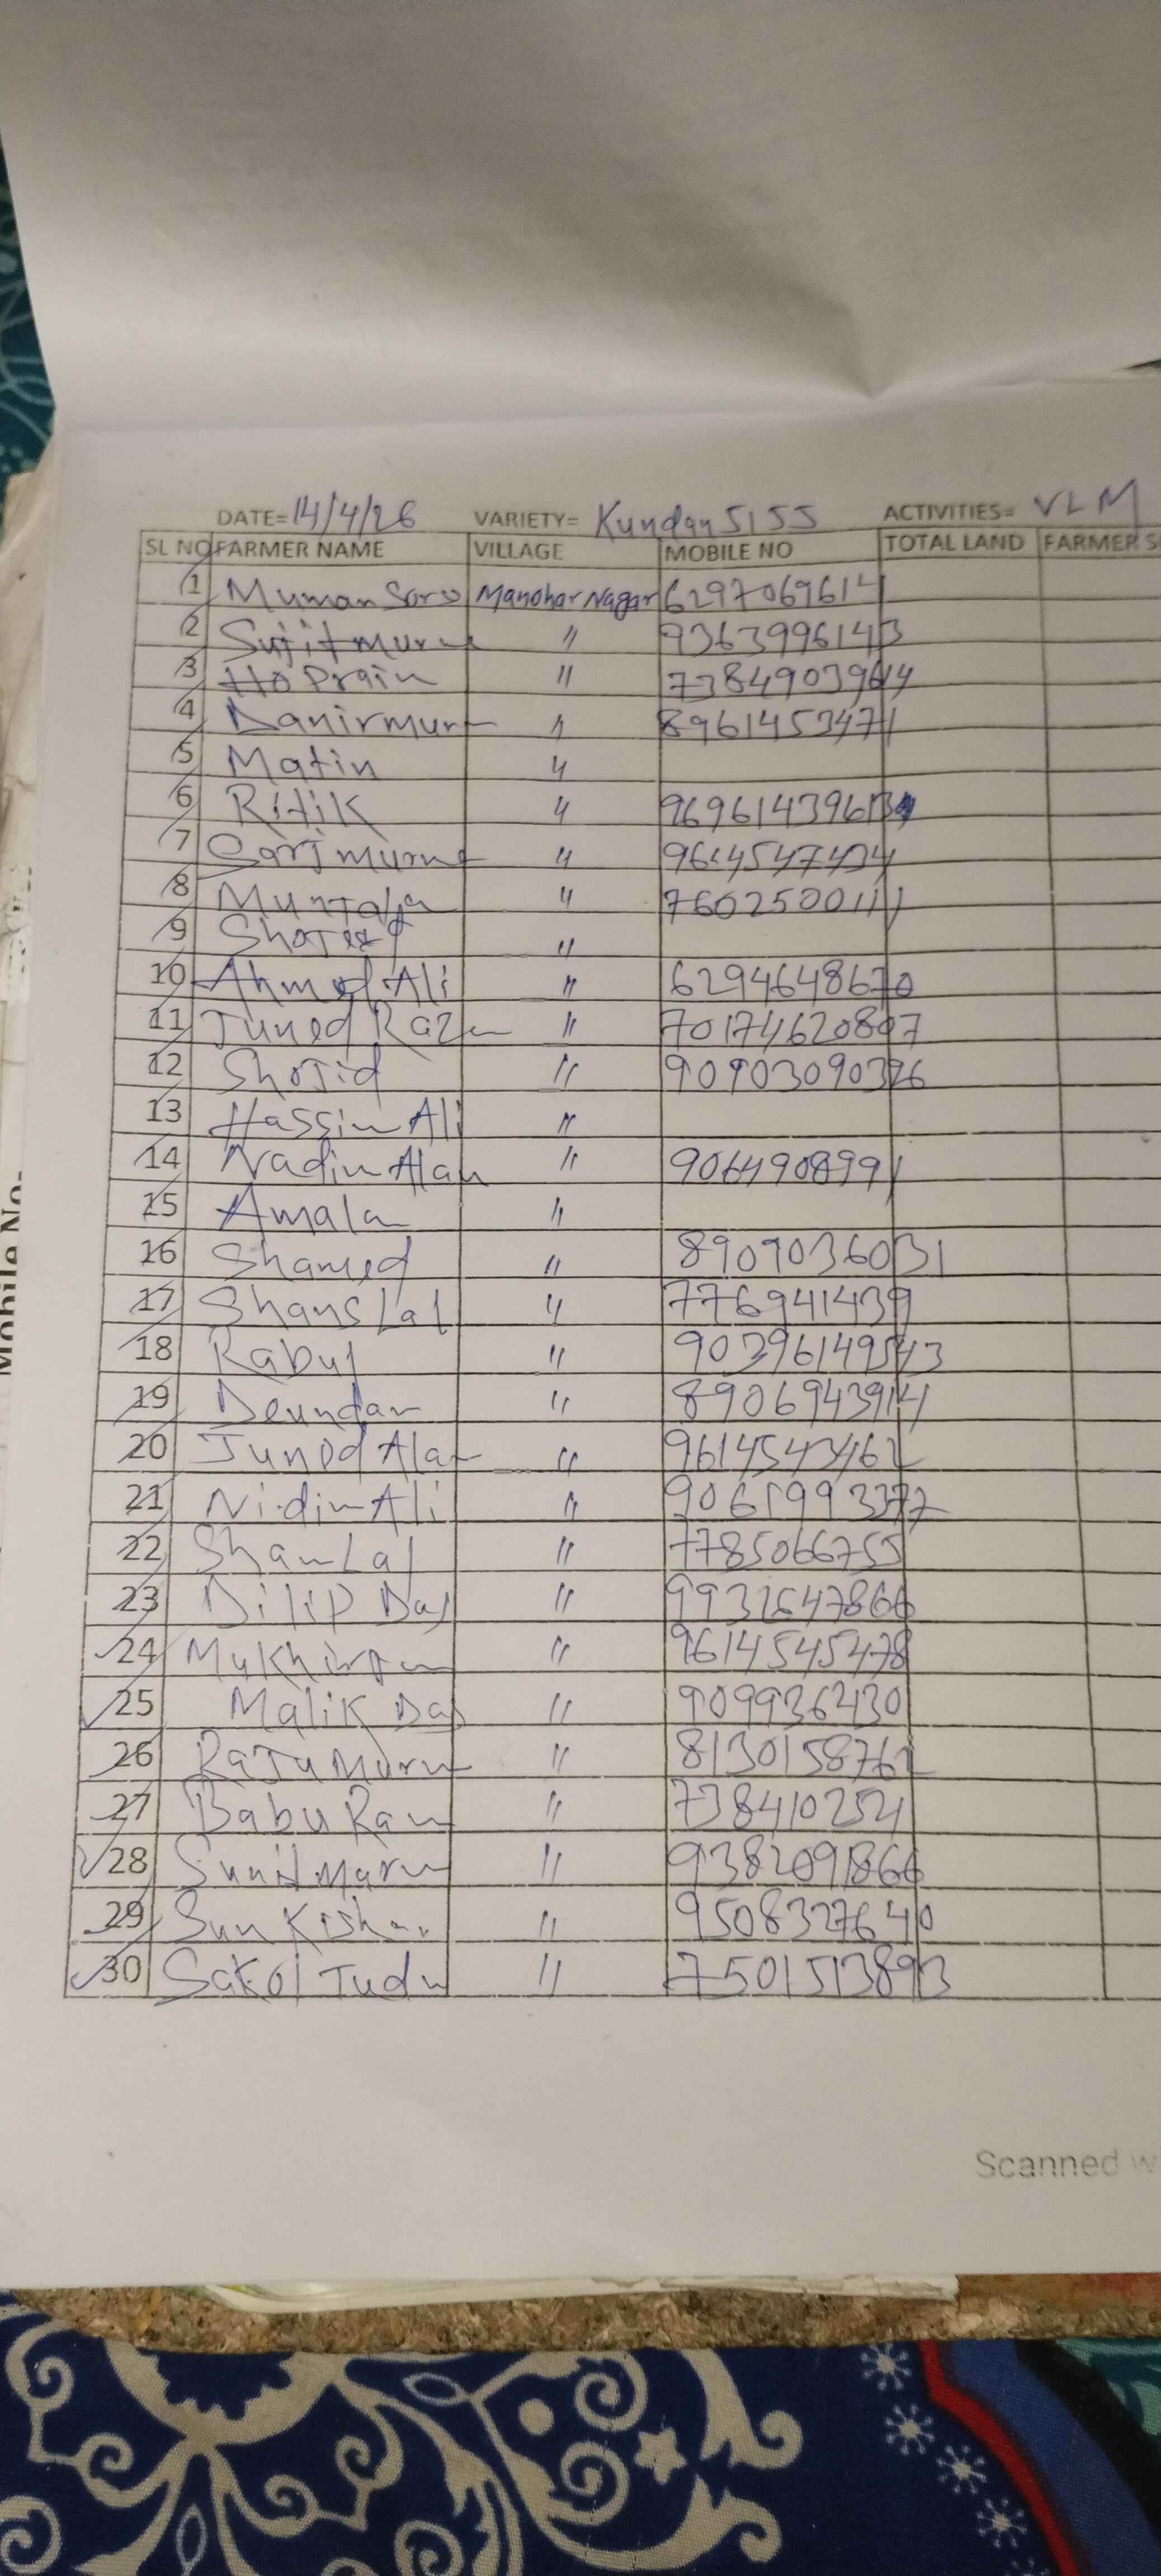 DATE=14/4/26 VARIETY= Kundan 5155 ACTIVITIES= VLM
SL NO FARMER NAME VILLAGE MOBILE NO TOTAL LAND FARMER S
1 Muman Soro Manohar Nagar 6297069614
2 Sujit murm " 9363996143
3 Ho Prain " 73849039614
4 Danirmurm " 8961453471
5 Matin "
6 Ritik " 969614396
7 Sarj murmu " 9614547434
8 Murtaja " 7602500111
9 Shojeef "
10 Ahmed Ali " 6294648670
11 Juned Raza " 70174620807
12 Shojid " 90903090326
13 Hassim Ali "
14 Nadim Alam " 9064908991
15 Amala "
16 Shamed " 8909036031
17 Shans Lal " 7769414439
18 Rabul " 90396149543
19 Deundar " 8906943914
20 Juned Alam " 9614543462
21 Nidim Ali " 9061993377
22 Sham Lal " 7785066755
23 Dilip Das " 9932647866
24 " 9614545478
25 Malik Das " 9099362430
26 Raju Murmu " 8130158762
27 Babu Ram " 738410254
28 Sunil Marm " 9382091866
29 Sun Kishar " 9508327640
30 Sakol Tudu " 7501513893
Mobile No-
Scanned w